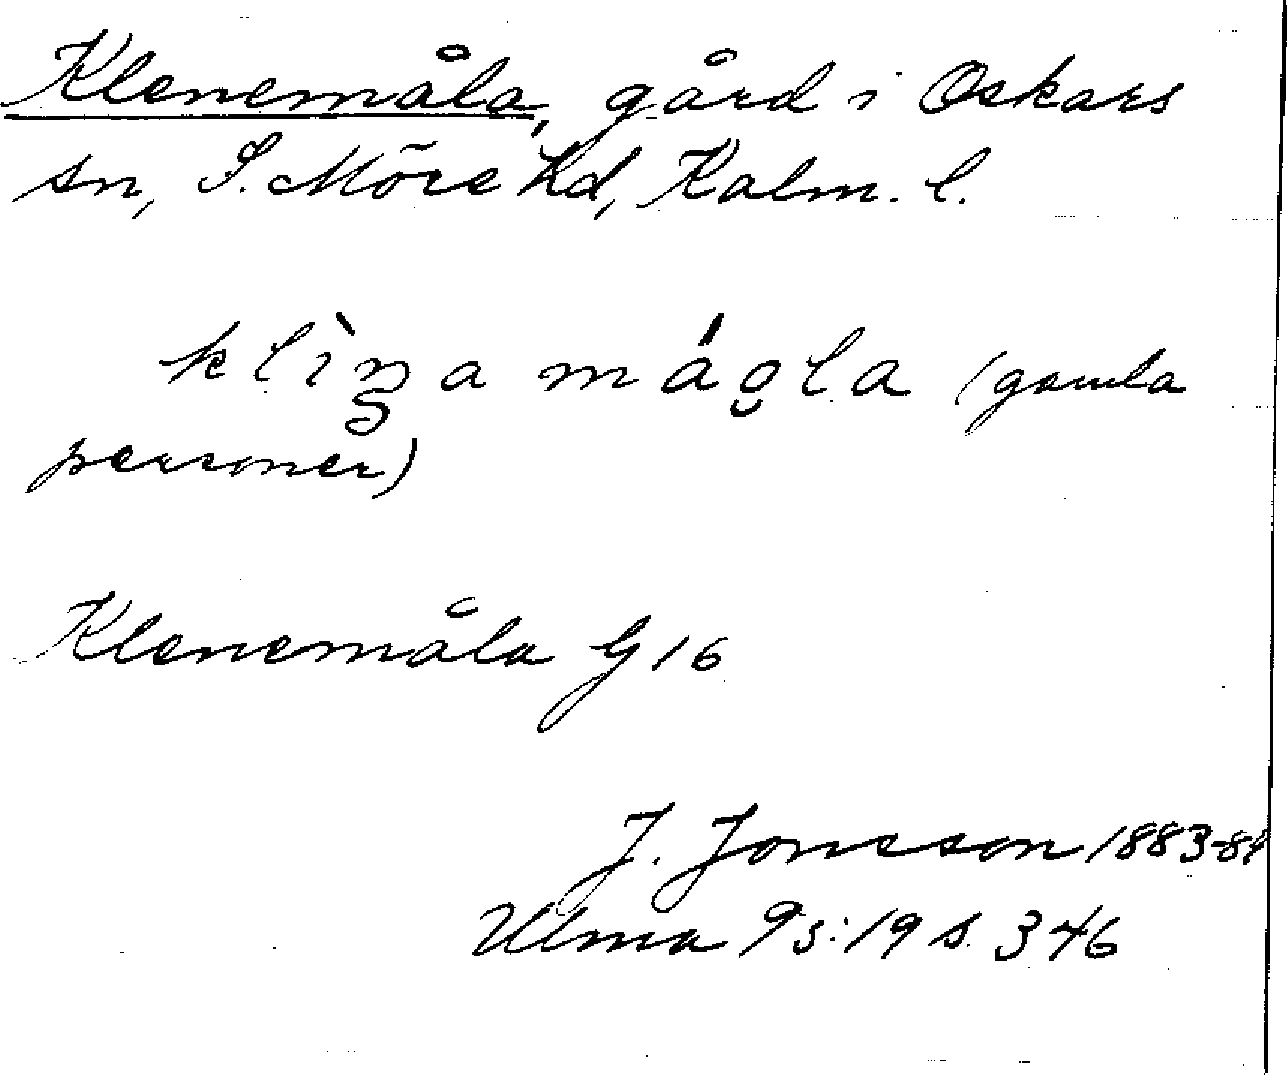 Klenemåla, gård i Oskars
sn, S. Möre hd, Kalm. l.
klìn̥a máo̬la (gamla
personer)
Klenemåla G 16
J. Jonsson 1883-84
Ulma 93:19 s. 346